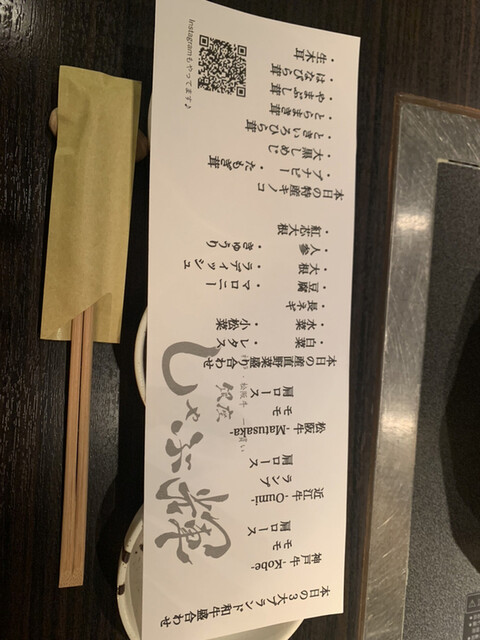 本日の3大ブランド和牛盛合わせ
神戸牛 -Kobe-
モモ
肩ロース
近江牛 -Oumi-
ランプ
肩ロース
松阪牛 -Matusaka-
モモ
肩ロース
本日の産直野菜盛り合わせ
・白菜 ・レタス
・水菜 ・小松菜
・長ネギ
・豆腐 ・マロニー
・大根 ・ラディッシュ
・人参 ・きゅうり
・紅芯大根
本日の特産キノコ
・ブナピー ・たもぎ茸
・大黒しめじ
・ときいろひら茸
・とらまき茸
・やまぶし茸
・はなびら茸
・生木耳
Instagramもやってます♪
しゃぶ輝
銀座
松阪牛 一頭買い